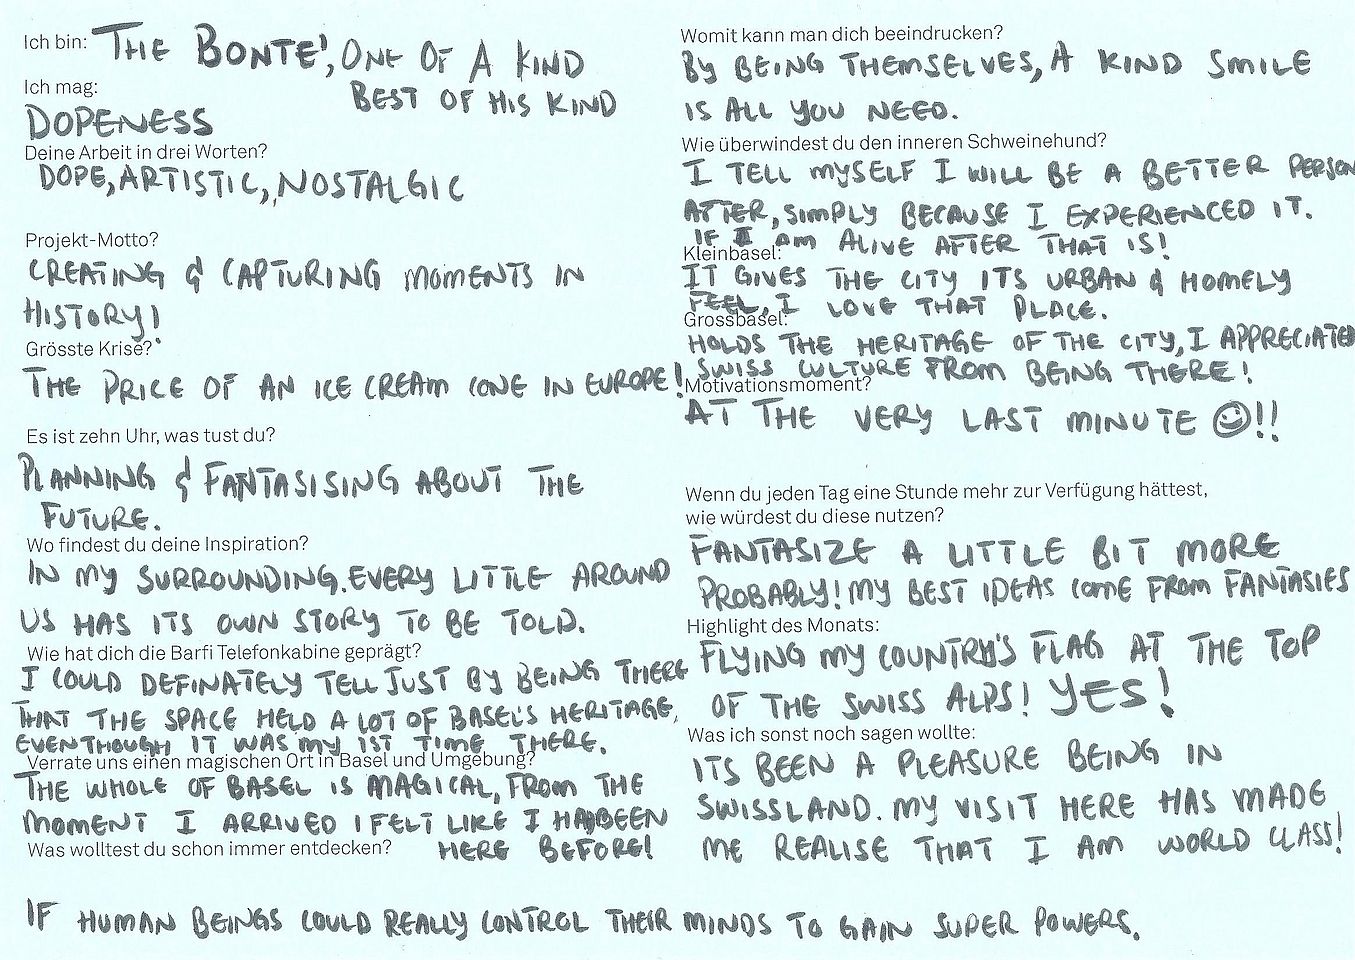 Ich bin: THE BONTE', ONE OF A KIND
BEST OF HIS KIND
Ich mag:
DOPENESS
Deine Arbeit in drei Worten?
DOPE, ARTISTIC, NOSTALGIC
Projekt-Motto?
CREATING & CAPTURING MOMENTS IN
HISTORY!
Grösste Krise?
THE PRICE OF AN ICE CREAM CONE IN EUROPE!
Es ist zehn Uhr, was tust du?
PLANNING & FANTASISING ABOUT THE
FUTURE.
Wo findest du deine Inspiration?
IN MY SURROUNDING. EVERY LITTLE AROUND
US HAS ITS OWN STORY TO BE TOLD.
Wie hat dich die Barfi Telefonkabine geprägt?
I COULD DEFINATELY TELL JUST BY BEING THERE
THAT THE SPACE HELD A LOT OF BASEL'S HERITAGE,
EVENTHOUGH IT WAS MY 1ST TIME THERE.
Verrate uns einen magischen Ort in Basel und Umgebung?
THE WHOLE OF BASEL IS MAGICAL, FROM THE
MOMENT I ARRIVED I FELT LIKE I HAD BEEN
HERE BEFORE!
Was wolltest du schon immer entdecken?
IF HUMAN BEINGS COULD REALLY CONTROL THEIR MINDS TO GAIN SUPER POWERS.
Womit kann man dich beeindrucken?
BY BEING THEMSELVES, A KIND SMILE
IS ALL YOU NEED.
Wie überwindest du den inneren Schweinehund?
I TELL MYSELF I WILL BE A BETTER PERSON
AFTER, SIMPLY BECAUSE I EXPERIENCED IT.
IF I AM ALIVE AFTER THAT IS!
Kleinbasel:
IT GIVES THE CITY ITS URBAN & HOMELY
FEEL, I LOVE THAT PLACE.
Grossbasel:
HOLDS THE HERITAGE OF THE CITY, I APPRECIATED
SWISS CULTURE FROM BEING THERE!
Motivationsmoment?
AT THE VERY LAST MINUTE ☺!!
Wenn du jeden Tag eine Stunde mehr zur Verfügung hättest,
wie würdest du diese nutzen?
FANTASIZE A LITTLE BIT MORE
PROBABLY! MY BEST IDEAS COME FROM FANTASIES
Highlight des Monats:
FLYING MY COUNTRY'S FLAG AT THE TOP
OF THE SWISS ALPS! YES!
Was ich sonst noch sagen wollte:
ITS BEEN A PLEASURE BEING IN
SWISSLAND. MY VISIT HERE HAS MADE
ME REALISE THAT I AM WORLD CLASS!